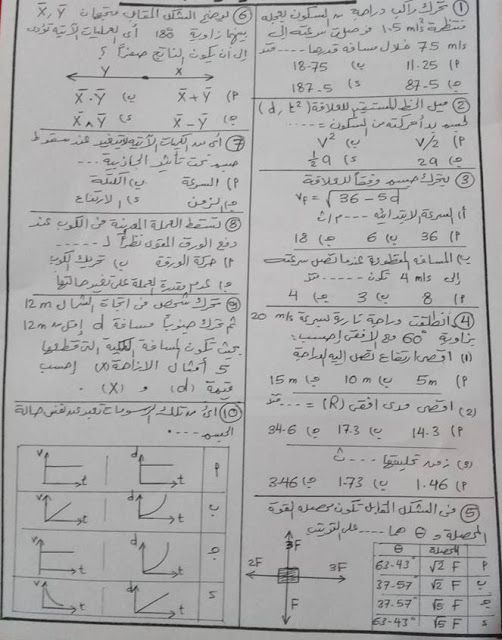 ① تحرك راكب دراجة من السكون بعجلة
منتظمة 1.5 m/s² فوصلت سرعته إلى
7.5 m/s خلال مسافة قدرها .... متر
P) 11.25 ب) 18.75
ج) 87.5 د) 187.5
② ميل الخط المستقيم للعلاقة (d , t²)
لجسم بدأ حركته من السكون = ....
P) V/2 ب) V²
ج) 2g د) ½ g
③ يتحرك جسم وفقاً للعلاقة
V_F = √36 - 5d
أ) السرعة الابتدائية .... م/ث
P) 36 ب) 6 ج) 18
ب) المسافة المقطوعة عندما تصل سرعته
إلى 4 m/s تكون .... متر
P) 8 ب) 3 ج) 4
④ انطلقت دراجة نارية بسرعة 20 m/s
بزاوية 60° مع الأفقى احسب:
(1) أقصى ارتفاع تصل إليه الدراجة
P) 5m ب) 10 m ج) 15 m
(2) أقصى مدى أفقى (R) = .... متر
P) 14.3 ب) 17.3 ج) 34.6
(3) زمن تحليقها .... ث
P) 1.46 ب) 1.73 ج) 3.46
⑤ فى الشكل المقابل تكون محصلة القوة
المحصلة و θ هما .... على الترتيب
المحصلة θ
P √2 F 63.43°
ب √2 F 37.57°
ج √5 F 37.57°
د √5 F 63.43°
3F
2F
3F
F
⑥ يوضح الشكل المقابل متجهان X̄, Ȳ
بينهما زاوية 180° أى العمليات الآتية تؤدى
إلى أن يكون الناتج صفراً؟
Y X
P) X̄ + Ȳ ب) X̄ . Ȳ
ج) X̄ - Ȳ د) X̄ ∧ Ȳ
⑦ أى من الكميات الآتية لا يتغير عند سقوط
جسم تحت تأثير الجاذبية ...
P) السرعة ب) الكتلة
ج) الزمن د) الارتفاع
⑧ تسقط العملة المعدنية فى الكوب عند
دفع الورق المقوى نظراً لـ ....
P) حركة الورقة ب) تحريك الكوب
ج) عدم مقدرة العملة على تغيير حالتها
⑨ تحرك شخص فى اتجاة الشمال 12m
ثم تحرك جنوباً مسافة d أقل من 12m
بحيث تكون المسافة الكلية التى قطعها
5 أمثال الازاحة (X) احسب
قيمة (d) و (X) .
⑩ أى من تلك الرسومات تعبر عن نفس حالة
الجسم ....
V t d t P
V t d t ب
V t d t ج
V t d t د